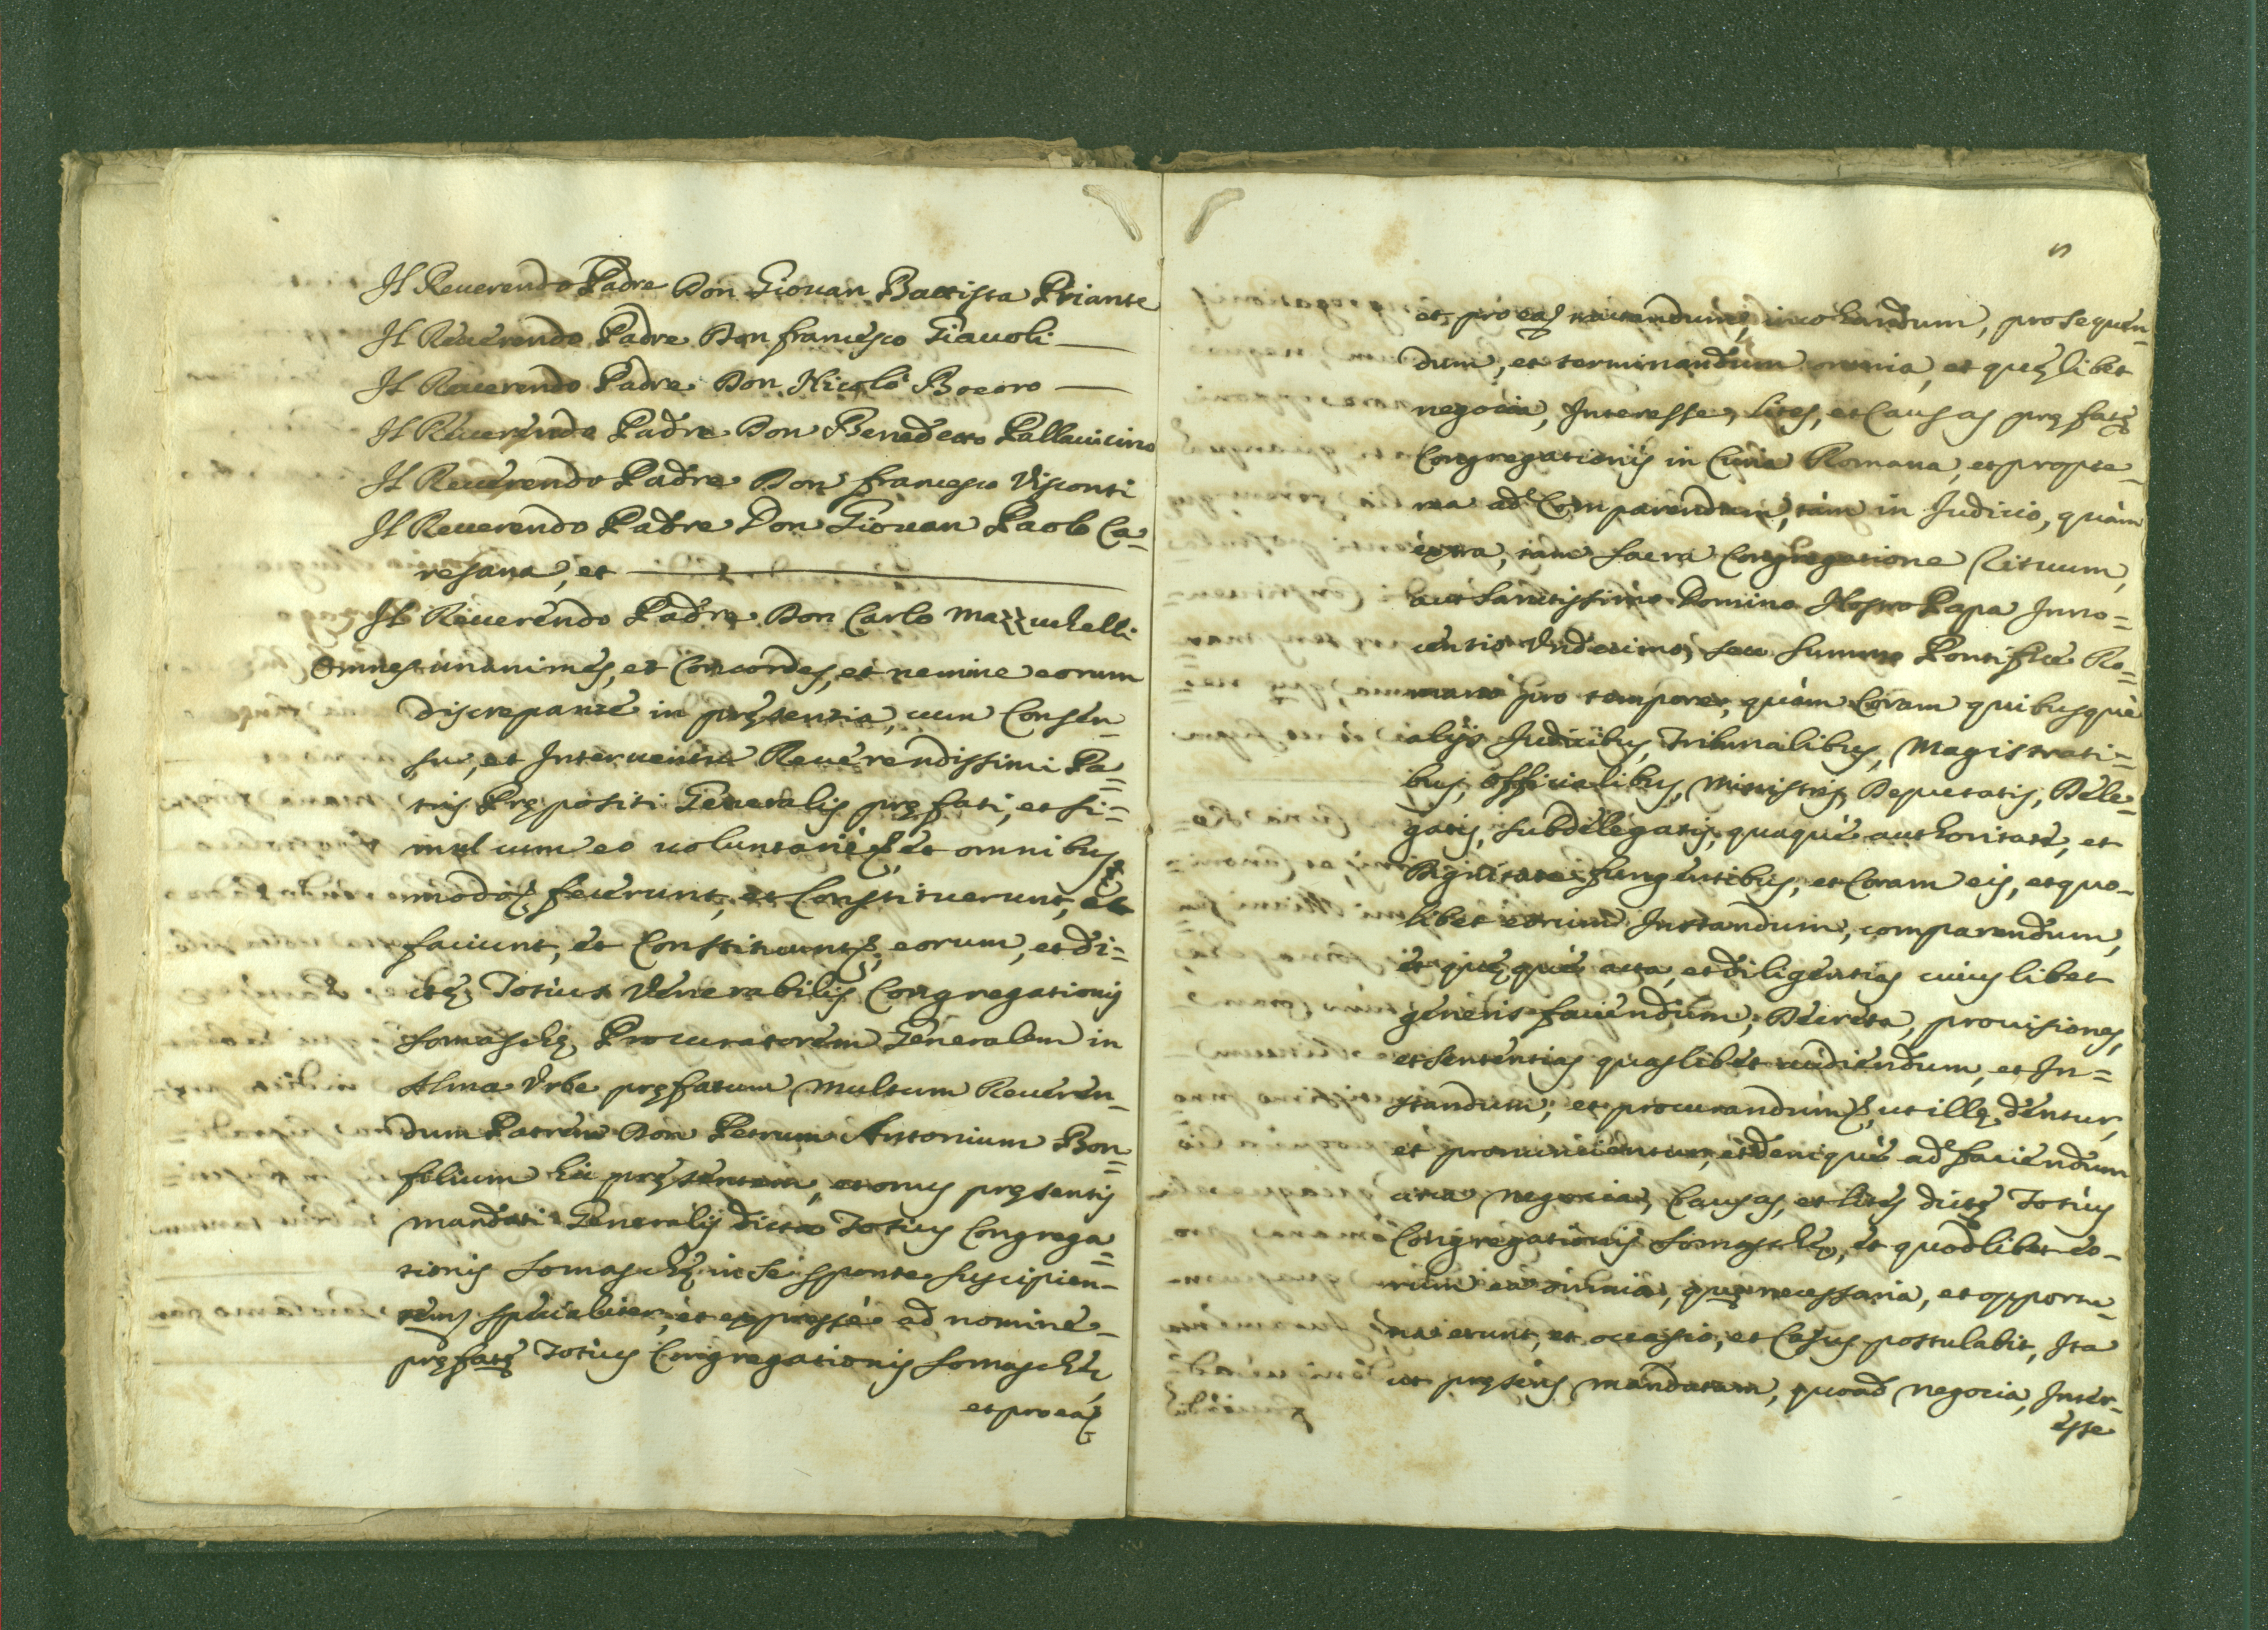 Il Reuerendo Padre Don Giouan Battista Priante
Il Reuerendo Padre Don francesco Giauoli
Il Reuerendo Padre Don Nicolò Boerro
Il Reuerendo Padre Don Benedetto Pallauicino
Il Reuerendo Padre Don francesco Visconti
Il Reuerendo Padre Don Giouan Paolo Ca=
resana, et
Il Reuerendo Padre Don Carlo Mazzuchelli
Omnes unanimes, et Concordes, et nemine eorum
discrepante in pręsentia, cum Consen=
su, et Interuentu Reuerendissimi Pa=
tris Prępositi Generalis pręfati, et si=
mul cum eo uoluntariè et omnibus
modo fecerunt, et Constituerunt, et
faciunt, et Constituunt eorum, et di=
ctę Totius Venerabilis Congregationis
Somaschę Procuratorem Generalem in
Alma Vrbe pręfatum Multum Reueren=
dum Patrem Don Petrum Antonium Bon=
filium hic pręsentem, et onus pręsentis
mandati Generalis dictę Totius Congrega=
tionis Somaschę in se sponte suscipien=
tem specialiter, et expressè ad nomine
pręfatę Totius Congregationis Somaschę
et pro ea
et pro ea tractandum, incohandum, prosequen=
dum, et terminandum omnia, et quęlibet
negocia, Interesse, lites, et Causas pręfatę
Congregationis in Curia Romana, et propte=
rea ad Comparendum, tàm in Judicio, quàm
extra, tam sacra Congregatione Rituum,
aut Sanctissimo Domino Nostro Papa Inno=
centio Vndecimo, seu Summo Pontifice Ro=
mano pro tempore, quàm Coram quibusquè
alijs Judicibus, Tribunalibus, Magistrati=
bus, Officialibus, Ministris, Deputatis, Dele=
gatis, Subdelegatis, quaquè authoritate, et
Dignitate fungentibus, et Coram eis, et quo=
libet eorum Instandum, comparendum,
et quęquè acta, et diligentias cuiuslibet
generis faciendum, Decreta, prouisiones,
et sententias quaslibet audiendum, et In=
standum, et procurandum, ut illę dentur,
et pronuncientur, et deniquè ad faciendum
circa negocia, Causas, et lites dictę Totius
Congregationis Somaschę, et quodlibet eo=
rum ea omnia, quę necessaria, et opportu=
na erunt, et occasio, et Casus postulabit, Ita
ut pręsens mandatum, quoad negocia, Inter=
esse